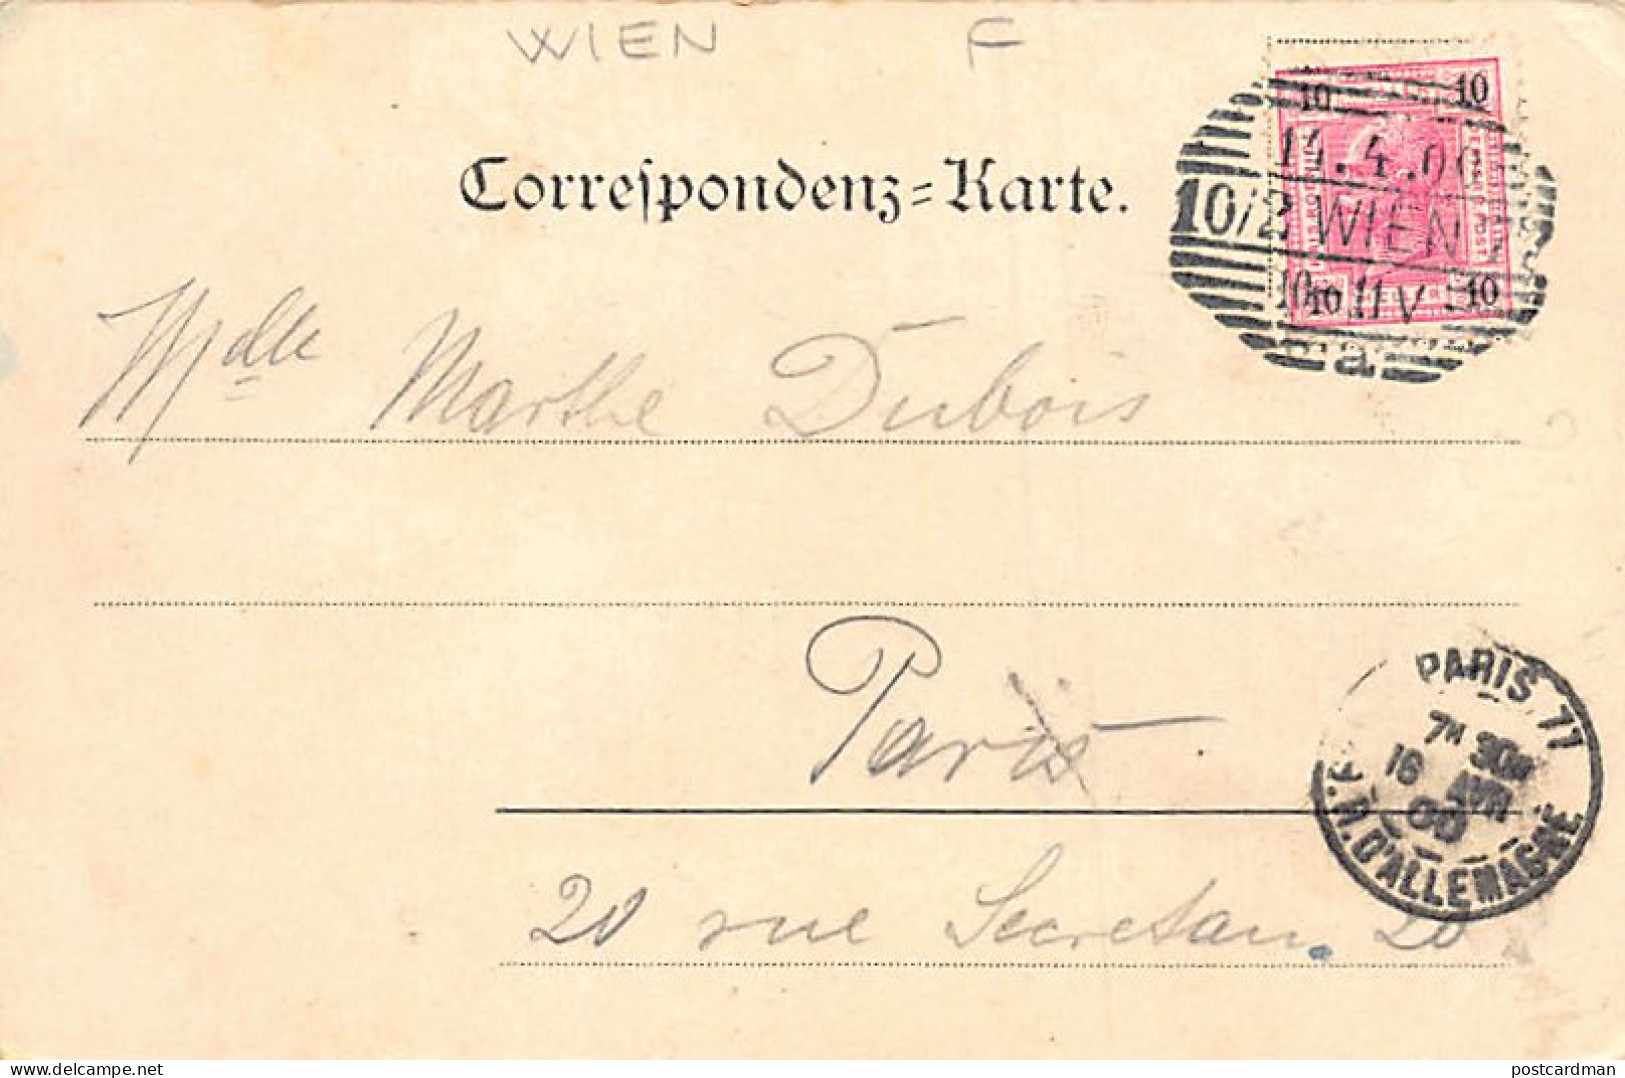 WIEN F
Correspondenz=Karte.
10 10
14.4.00
10/2 WIEN
10 10 IIV 10
a
Mdlle Marthe Dubois
Paris
PARIS. 71
7H 30M
16 AVRI
00
R. D'ALLEMAGNE
20 rue Secretan. 20
https://www.delcampe.net
postcardman